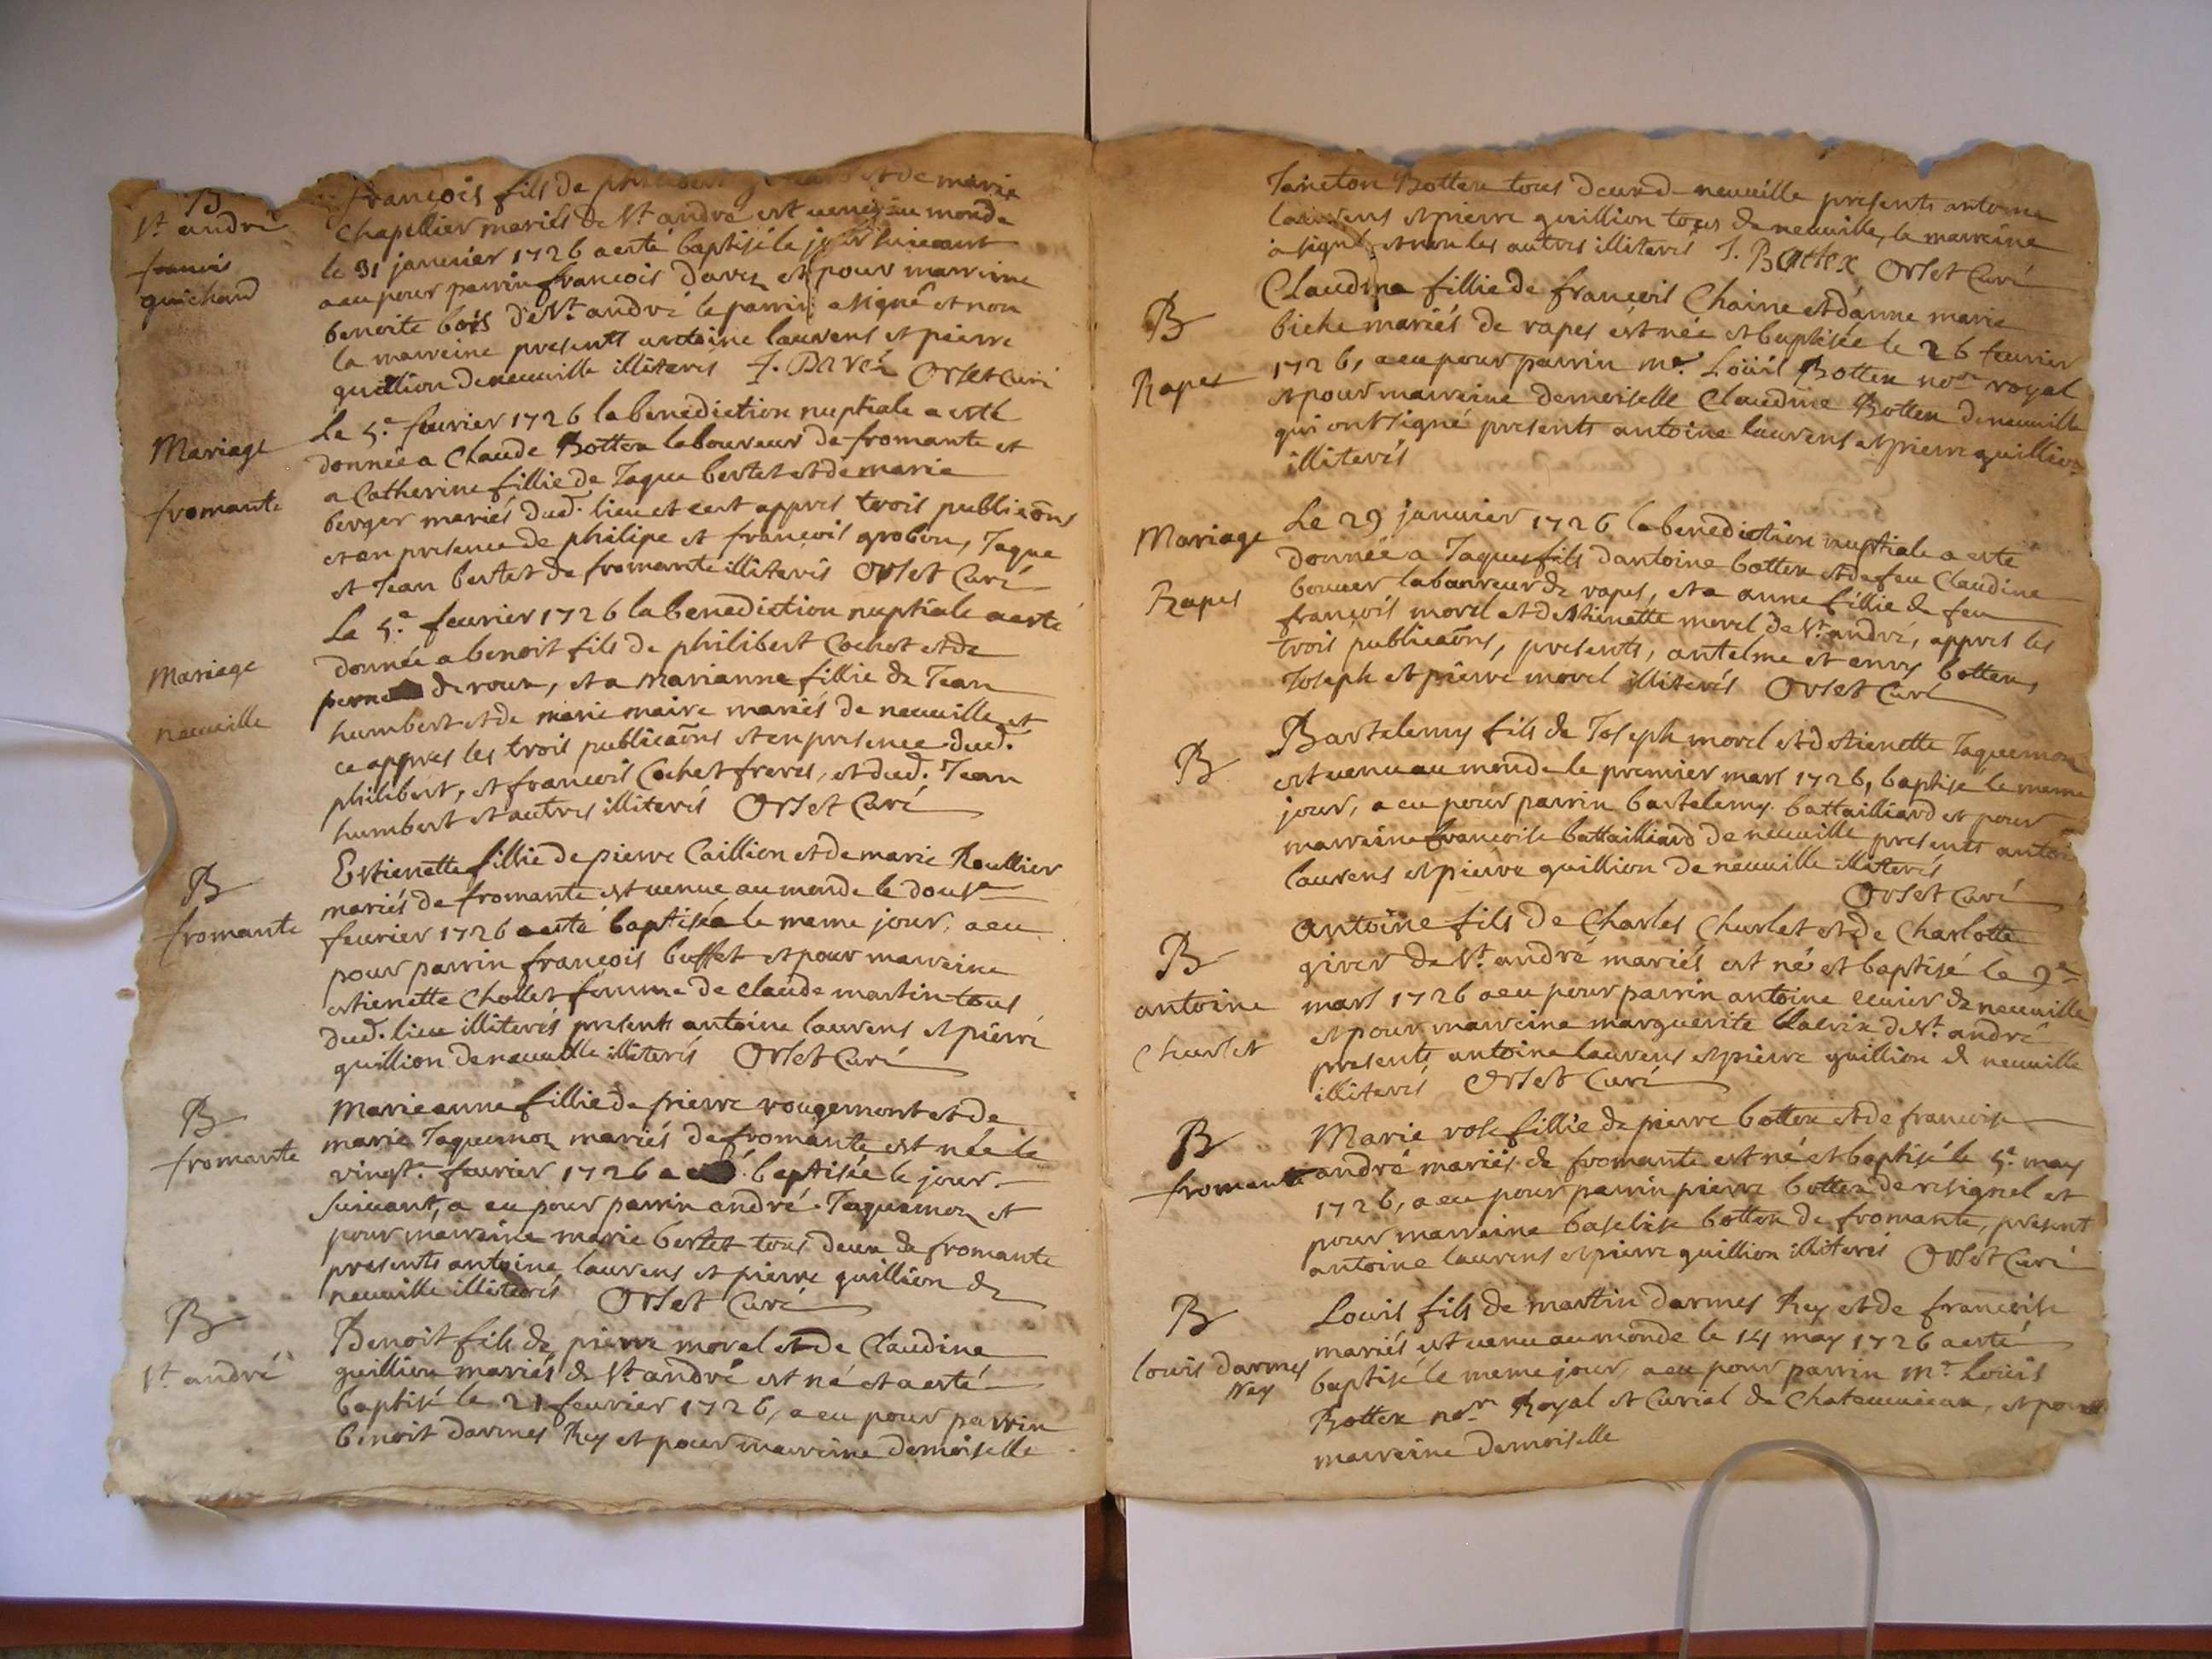 B
St andré
francois
guichard
francois fils de philibert et de marie
Chapellier mariés de St andré est venu au monde
le 31 januier 1726 a esté baptisé le jour suiuant
a eu pour parrin francois davez et pour marreine
benoite bois de St andré le parrin a signé et non
la marreine presents antoine laurens et pierre
guillion de neuuille illiterés f. Orset Curé
Mariage
fromante
Le 5e feurier 1726 la benediction nuptiale a esté
donnée a Claude Bottex laboureur de fromante et
a Catherine fillie de Jaque bertet et de marie
berger mariés dud. lieu et cest appres trois publicaōns
et en presence de philipe et francois grobon, Jaque
et Jean bertet de fromante illiterés Orset Curé
Mariage
neuuille
Le 5e feurier 1726 la benediction nuptiale a esté
donnée a benoit fils de philibert Cochet et de
de roux, et a Marianne fillie de Jean
humbert et de marie maire mariés de neuuille et
ce appres les trois publicaōns et en presence dud.
philibert, et francois Cochet freres, et dud. Jean
humbert et autres illiterés Orset Curé
B
fromante
Estienette fillie de pierre Caillion et de marie Roullier
mariés de fromante est uenue au monde le dousᵉ
feurier 1726 a esté baptisée le meme jour, a eu
pour parrin francois buffet et pour marreine
estienette Chollet femme de claude martin tous
dud. lieu illiterés presents antoine laurens et pierre
guillion de neuuille illiterés Orset Curé
B
fromante
Marie anne fillie de pierre rougemont et de
marie Jaquemoz mariés de fromante est née le
vingtᵉ feurier 1726 a baptisée le jour
suiuant, a eu pour parrin andré Jaquemoz et
pour marreine marie bertet tous deux de fromante
presents antoine laurens et pierre guillion de
neuuille illiterés Orset Curé
B
St andré
Benoit fils de pierre morel et de Claudine
guillion mariés de St andré est né et a esté
baptisé le 21 feurier 1726, a eu pour parrin
benoit darmes Rey et pour marreine demoiselle
Janeton Bottex tous deux de neuuille presents antoine
laurens et pierre guillion tous de neuuille, la marreine
a signé et non les autres illiterés J. Bottex Orset Curé
B
Rapes
Claudina fillie de francois Chaine et danne marie
biche mariés de rapes est née et baptisée le 26 feurier
1726, a eu pour parrin me. Loüis Bottex nore royal
et pour marreine demoiselle Claudine Bottex de neuuille
qui ont signé presents antoine laurens et pierre guillion
illiterés
Mariage
Rapes
Le 29 januier 1726 la benediction nuptiale a esté
donnée a Jaques fils dantoine bottex et de feu Claudine
bouuer laboureur de rapes, et a anne fillie de feu
francois morel et destienette morel de St andré, appres les
trois publicaōns, presents, antelme et bottex,
Joseph et pierre morel illiterés Orset Curé
B
Bartelemy fils de Joseph morel et destienette Jaquemoz
est uenu au monde le premier mars 1726, baptisé le meme
jour, a eu pour parrin bartelemy battailliard et pour
marreine francoise battailliard de neuuille presents antoi
laurens et pierre guillion de neuuille illiterés
Orset Curé
B
antoine
Churlet
antoine fils de Charles Churlet et de Charlotte
giver de St andré mariés est né et baptisé le 9e
mars 1726 a eu pour parrin antoine de neuuille
et pour marreine marguerite de St andré
presents antoine laurens et pierre guillion de neuuille
illiterés Orset Curé
B
fromante
Marie rose fillie de pierre bottex et de francoise
andré mariés de fromante est né et baptisé le 5e may
1726, a eu pour parrin pierre bottex de resignel et
pour marreine baselise bottex de fromante, present
antoine laurens et pierre guillion illiterés Orset Curé
B
louis darmes
Rey
Louis fils de martin darmes Rey et de francoise
mariés est uenu au monde le 14 may 1726 a esté
baptisé le meme jour, a eu pour parrin me Louis
Bottex nore Royal et Curial de Chateauuieux, et pour
marreine demoiselle